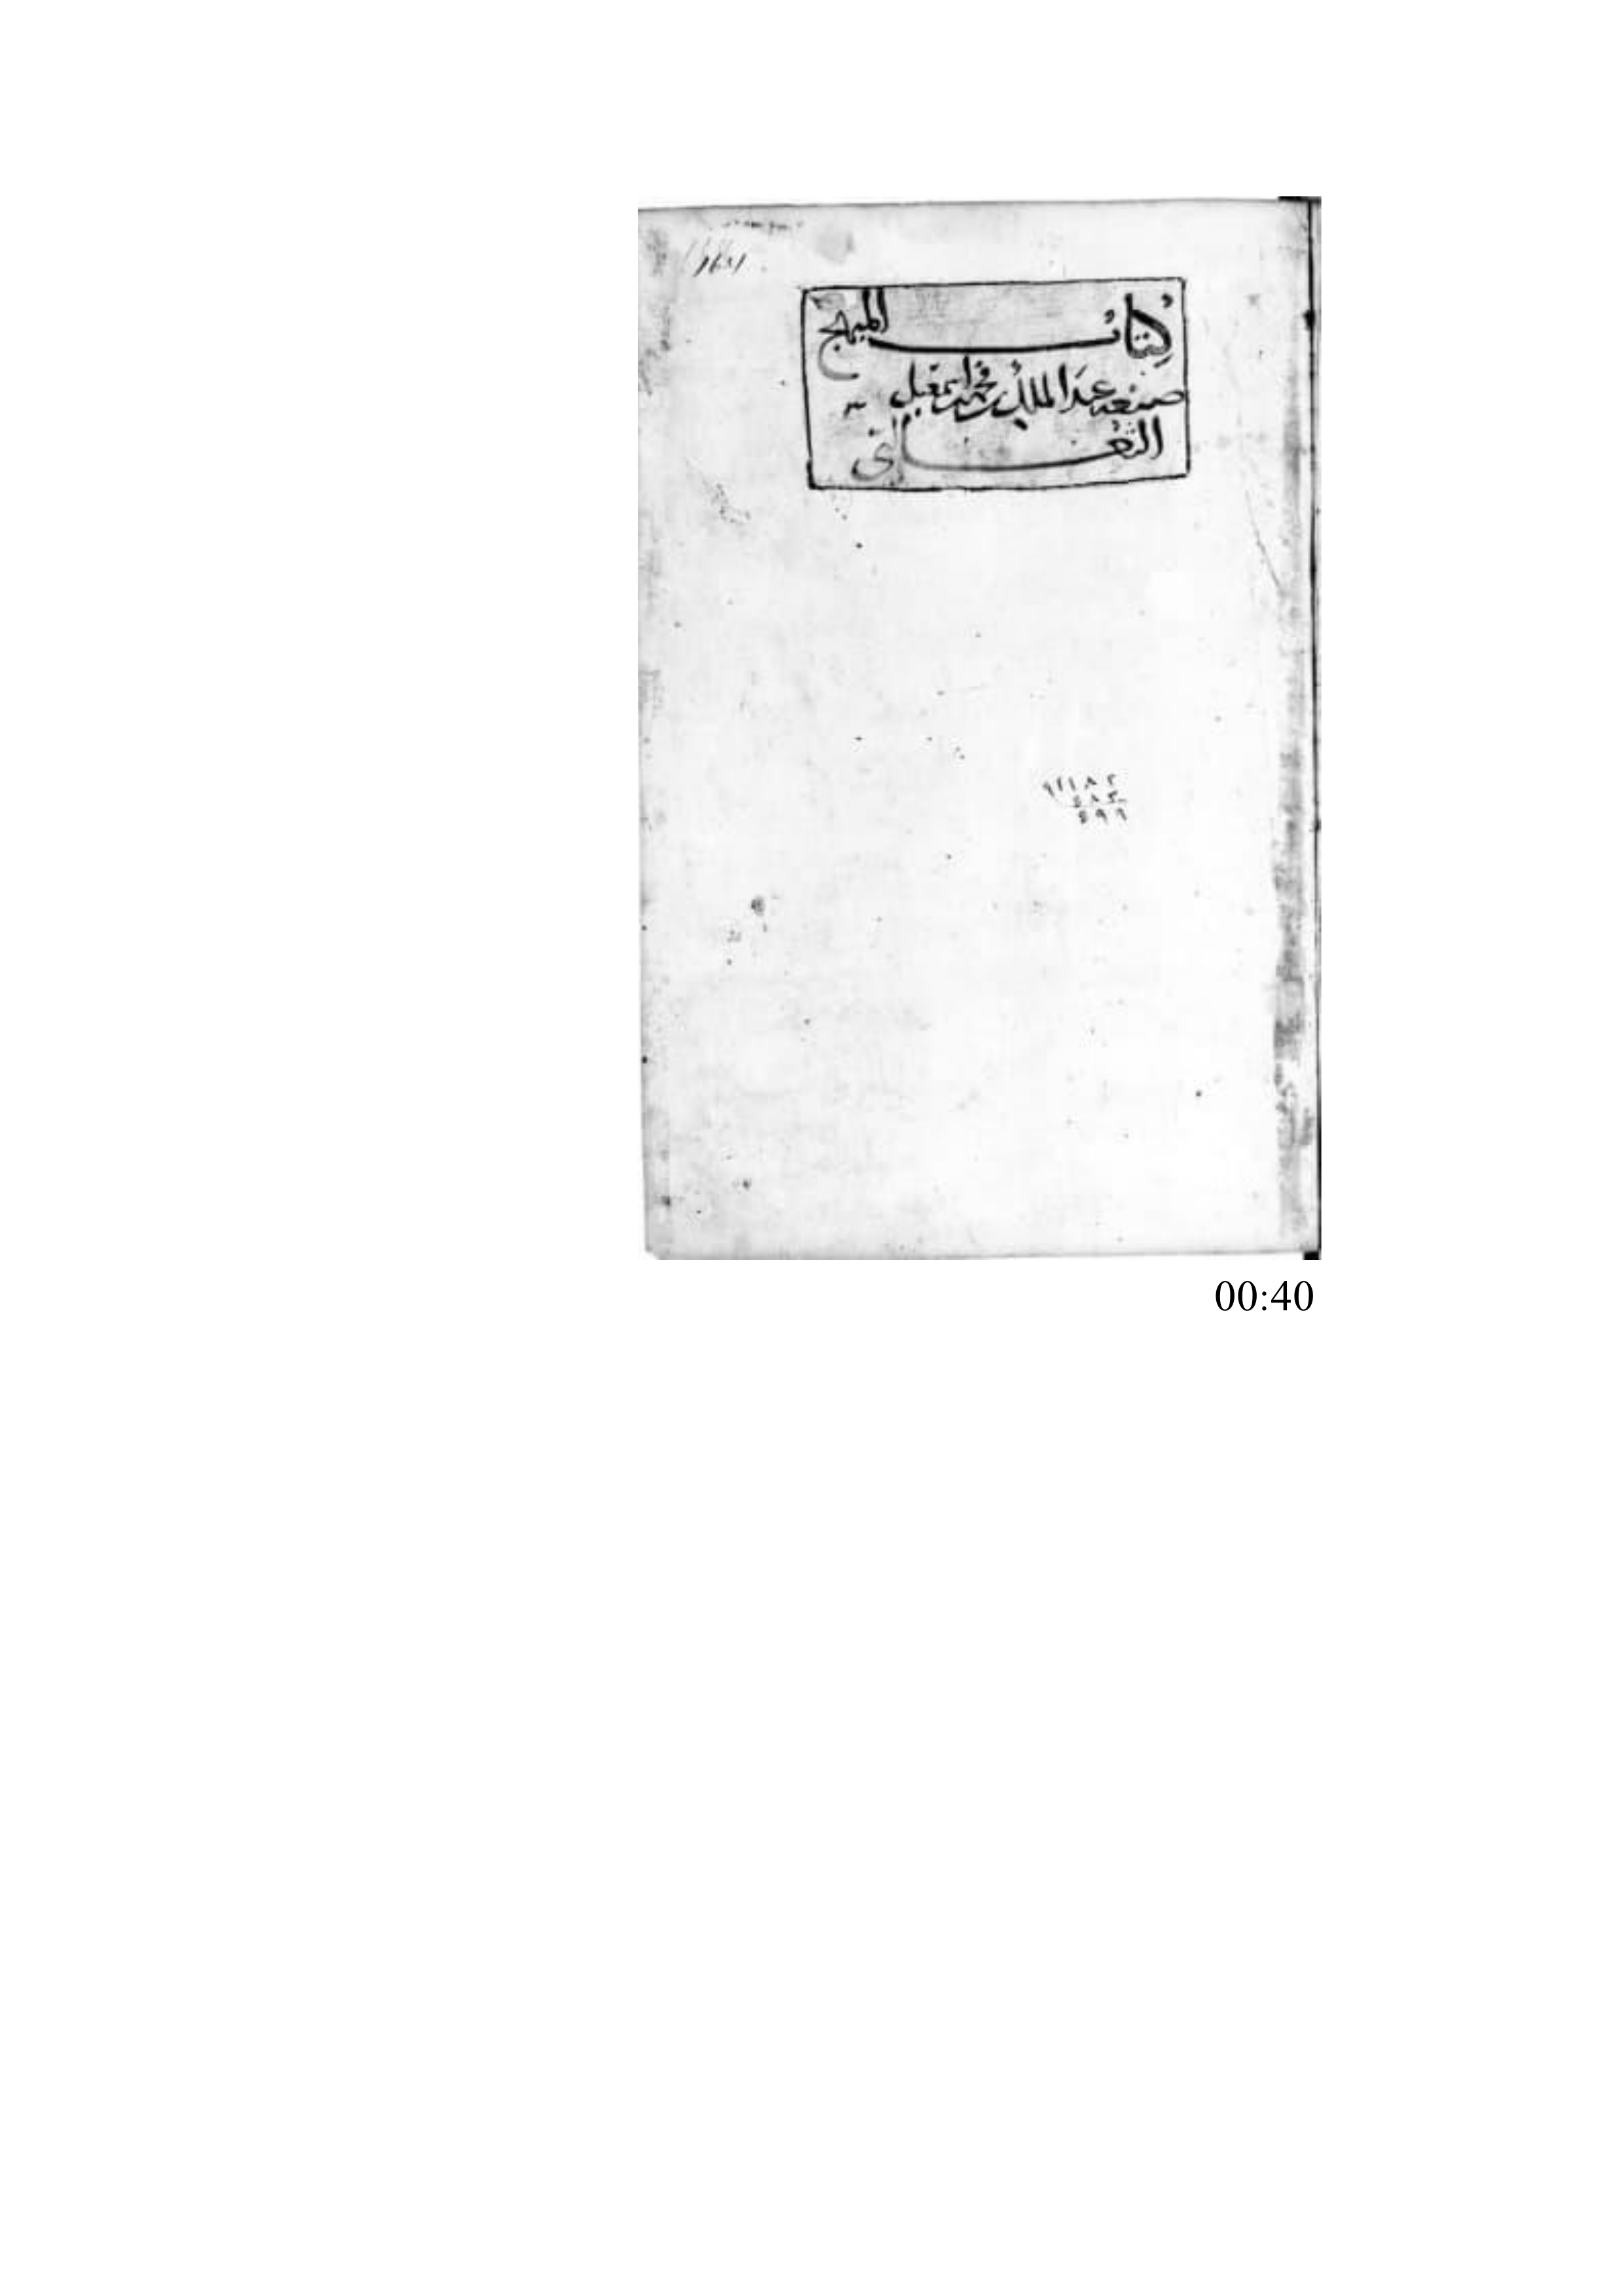 كتاب المبهج
صنعه عبد الملك بن محمد بن اسمعيل
الثعالبي
٤٩٩
00:40